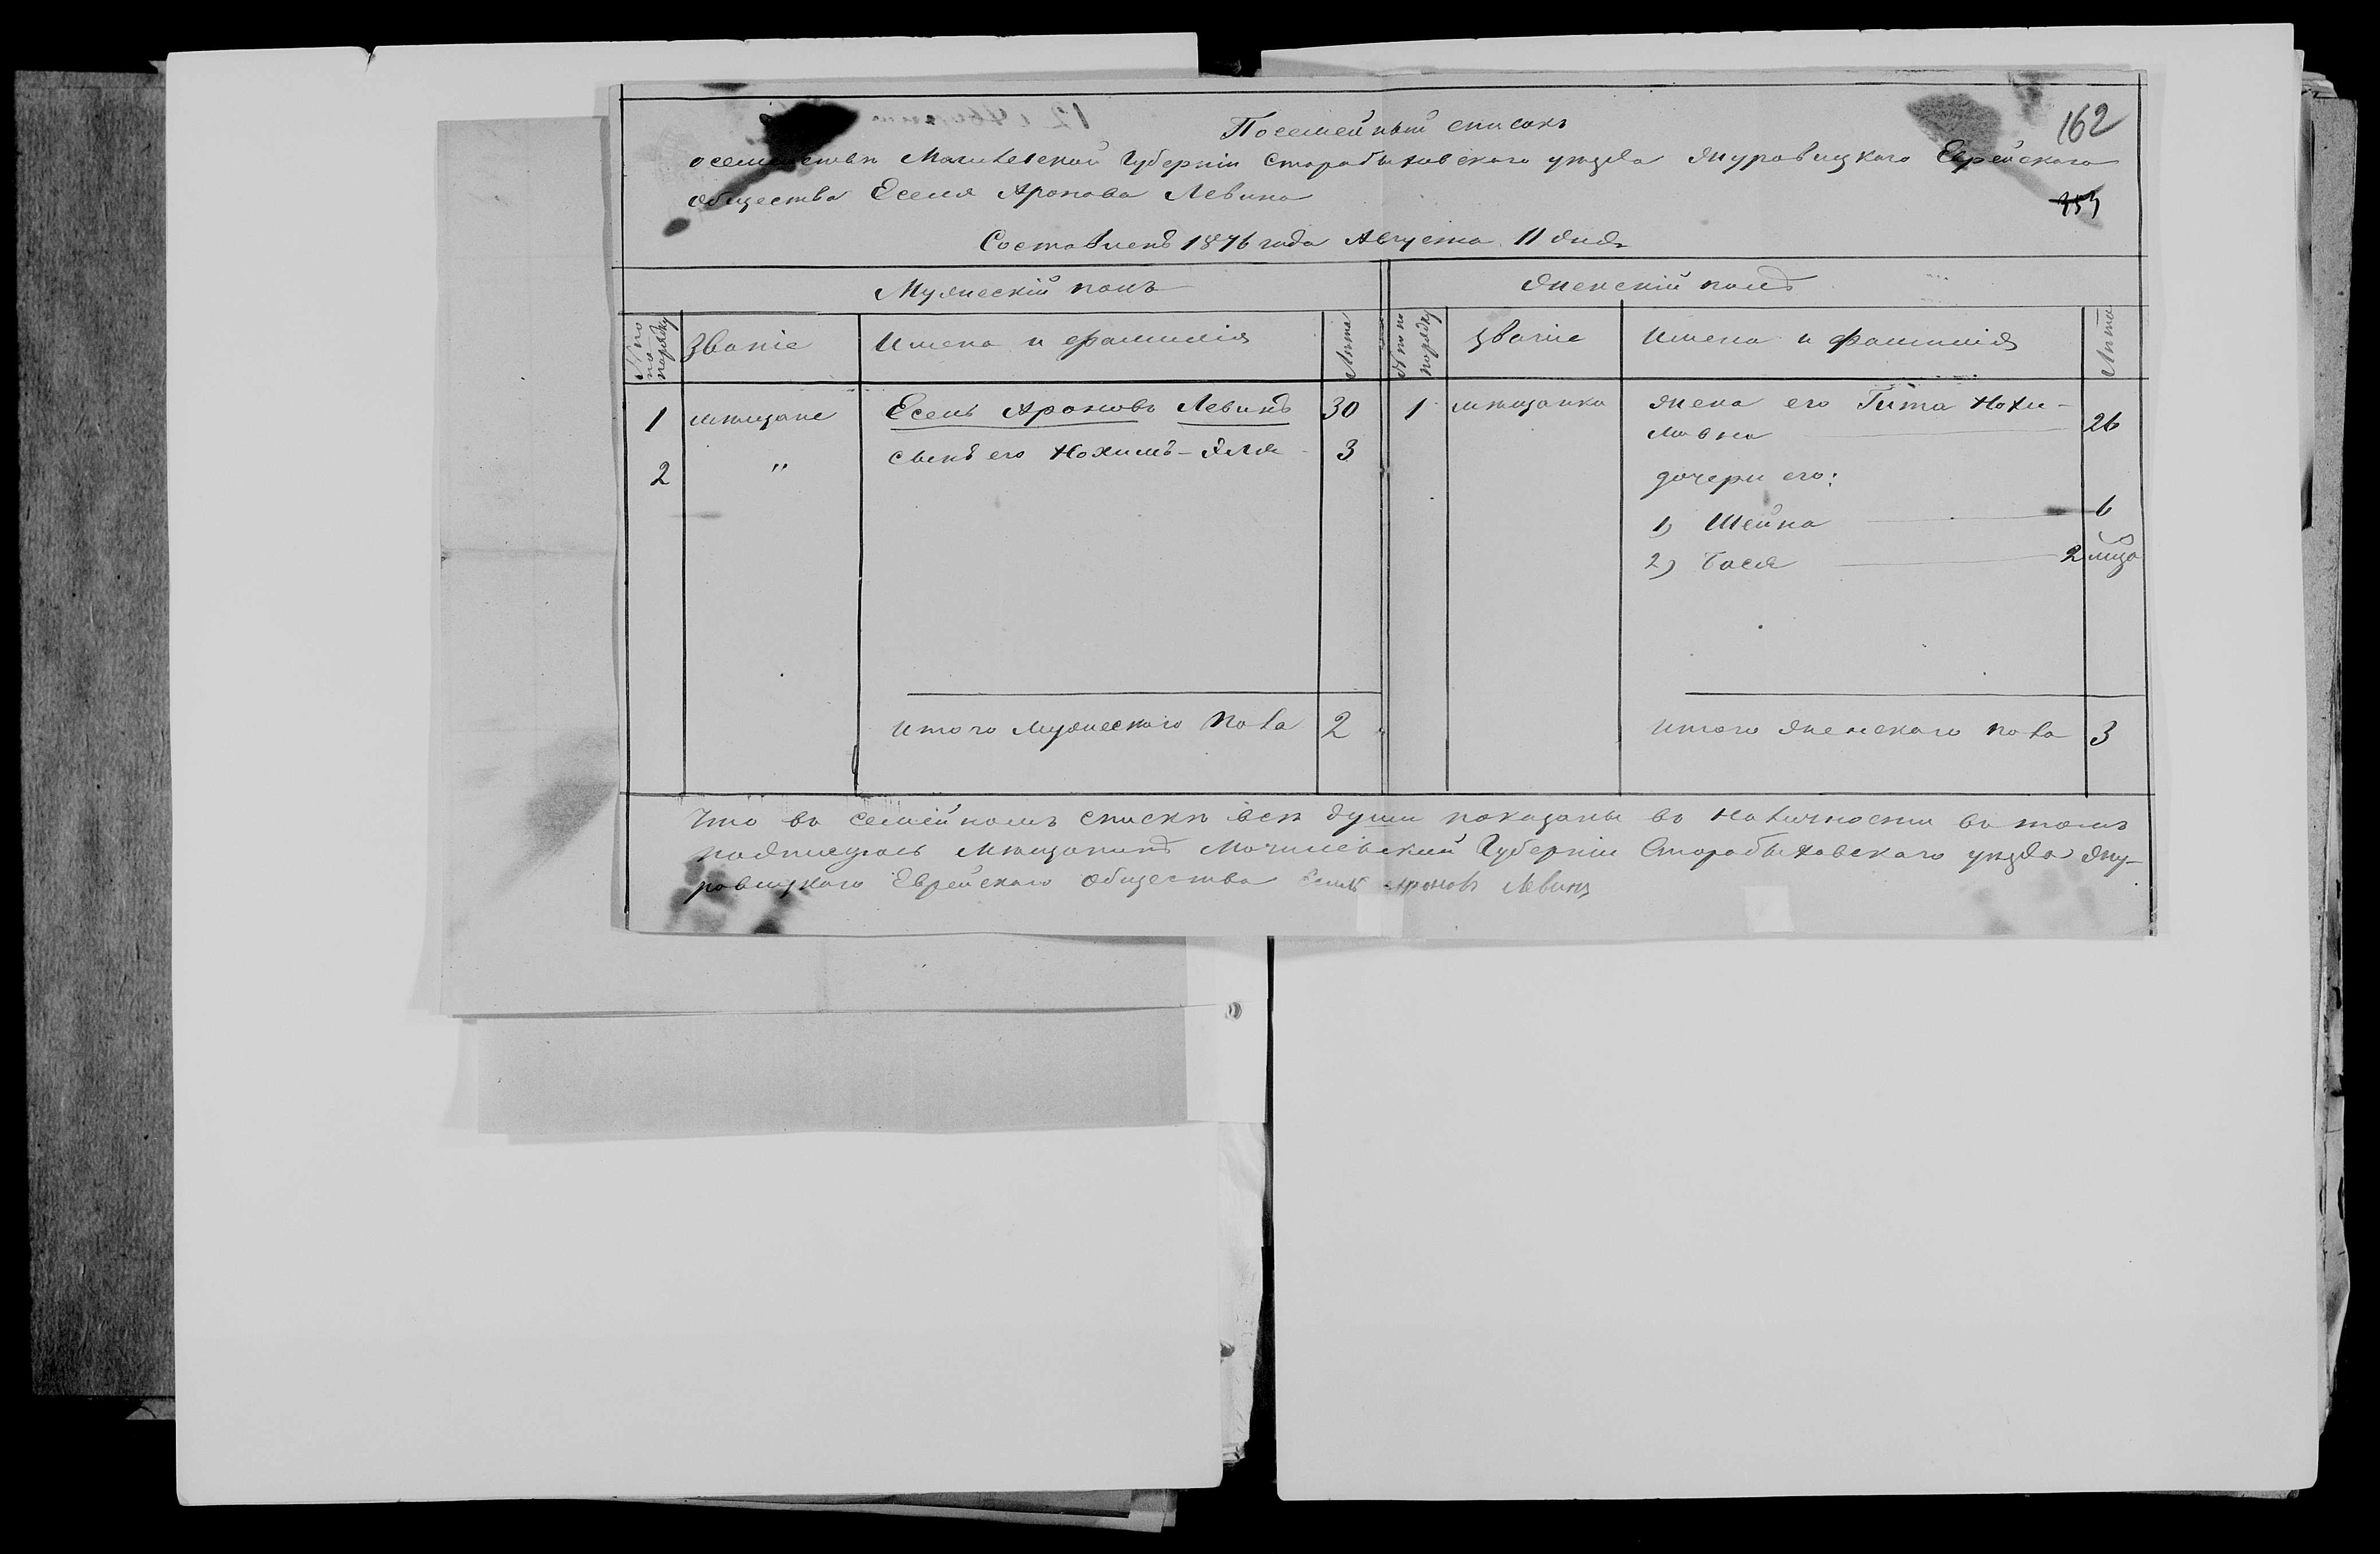 162
Посемейный списокъ
о семействѣ Могилевской Губерніи Старобыховскаго уѣзда Журавицкаго Еврейскаго
Общества Еселя Аронова Левина
353
Составленъ 1876 года Августа 11 дня
Мужескій полъ
Женскій полъ
№ по порядку
Званіе
Имена и фамилія
Лѣта
№ по порядку
Званіе
Имена и фамилія
Лѣта
1 мѣщане Есель Ароновъ Левинъ 30
2 " сынъ его Нохимъ- 3
1 мѣщанка жена его Гита Нохи-
мовна 26
дочери его:
1) Шейна 6
2) Бася 2 мѣсяца
Итого мужескаго пола 2
Итого женскаго пола 3
Что въ семейномъ спискѣ всѣ души показаны въ наличности въ томъ
подписуюсь Мѣщанинъ Могилевской Губерніи Старобыховскаго уѣзда Жу-
равицкаго Еврейскаго Общества Есель Ароновъ Левинъ